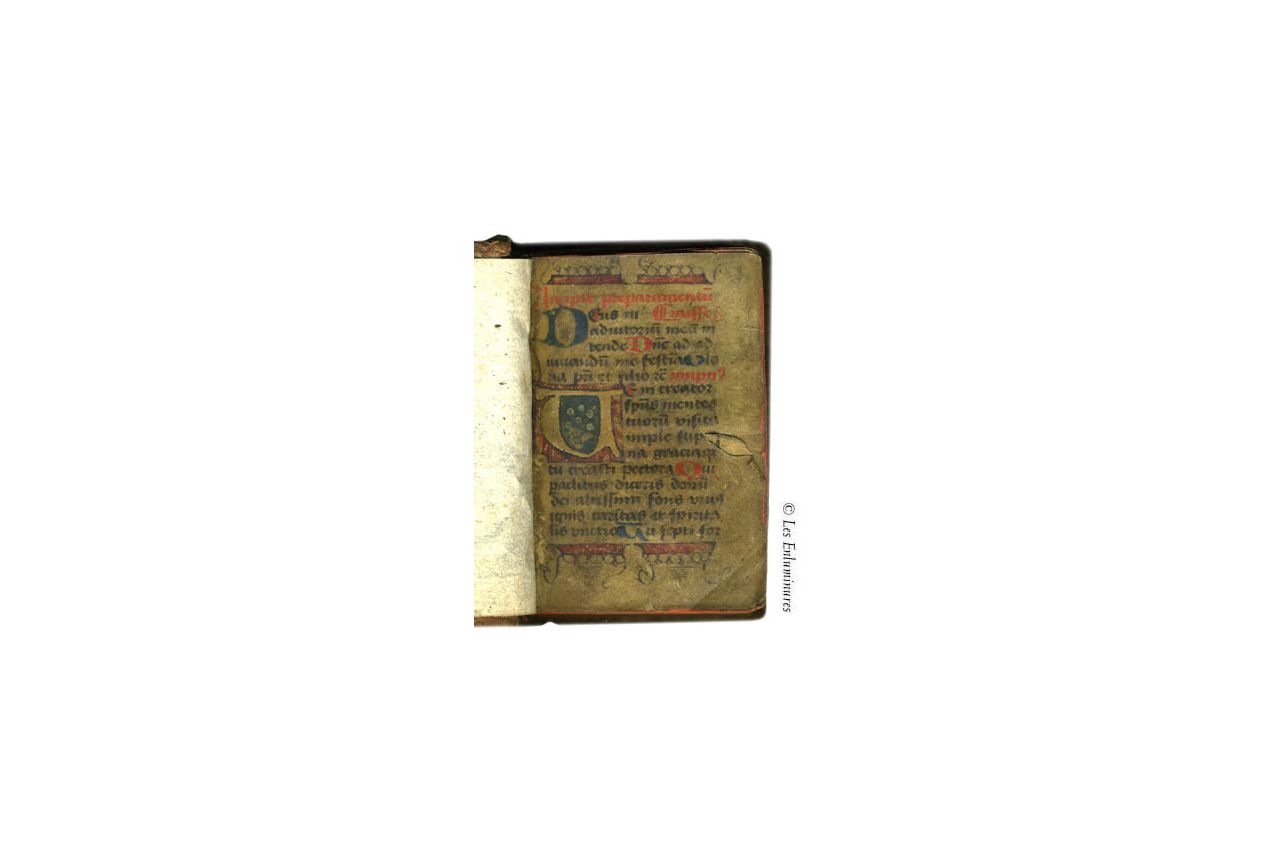 Incipit preparamentū
Deus in misse
adiutoriū meū in
tende Dn̄e ad ad
iuuandū me festina Glo
ria pr̄i et filio rc̄ ympn9
Veni creator
sp̄us mentes
tuorū visita
imple sup
na gracia q̄
tu creasti pectora Qui
paclitus diceris donū
dei altissimi fons viu9
ignis caritas et spirita
lis vnctio Tu septi for
© Les Enluminures